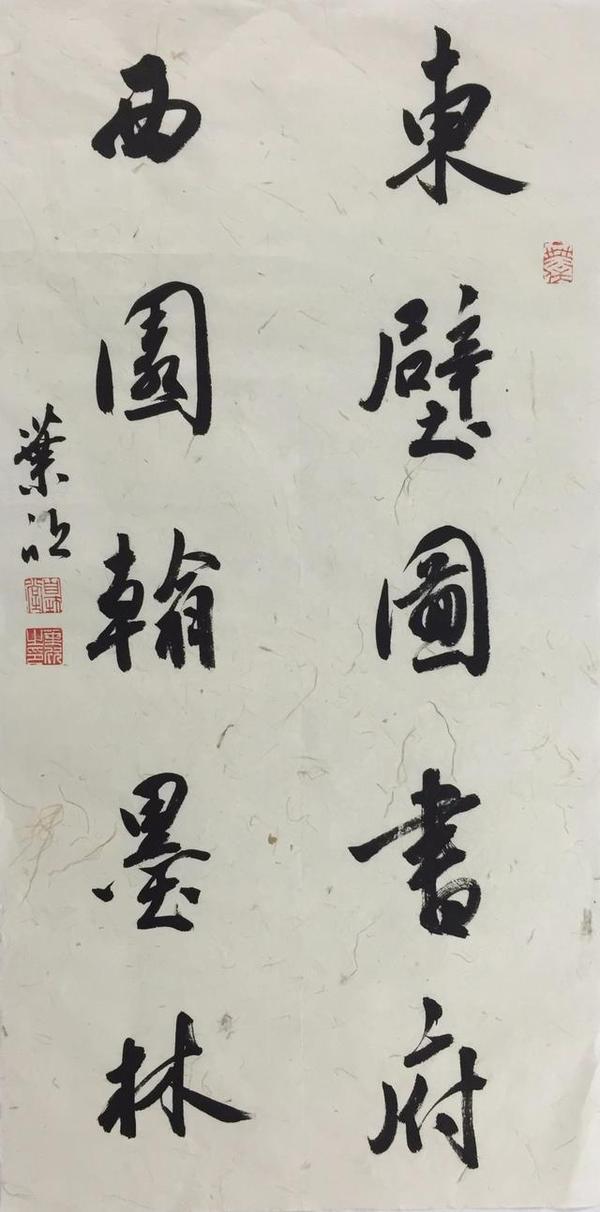 東壁圖書府
西園翰墨林
葉欣